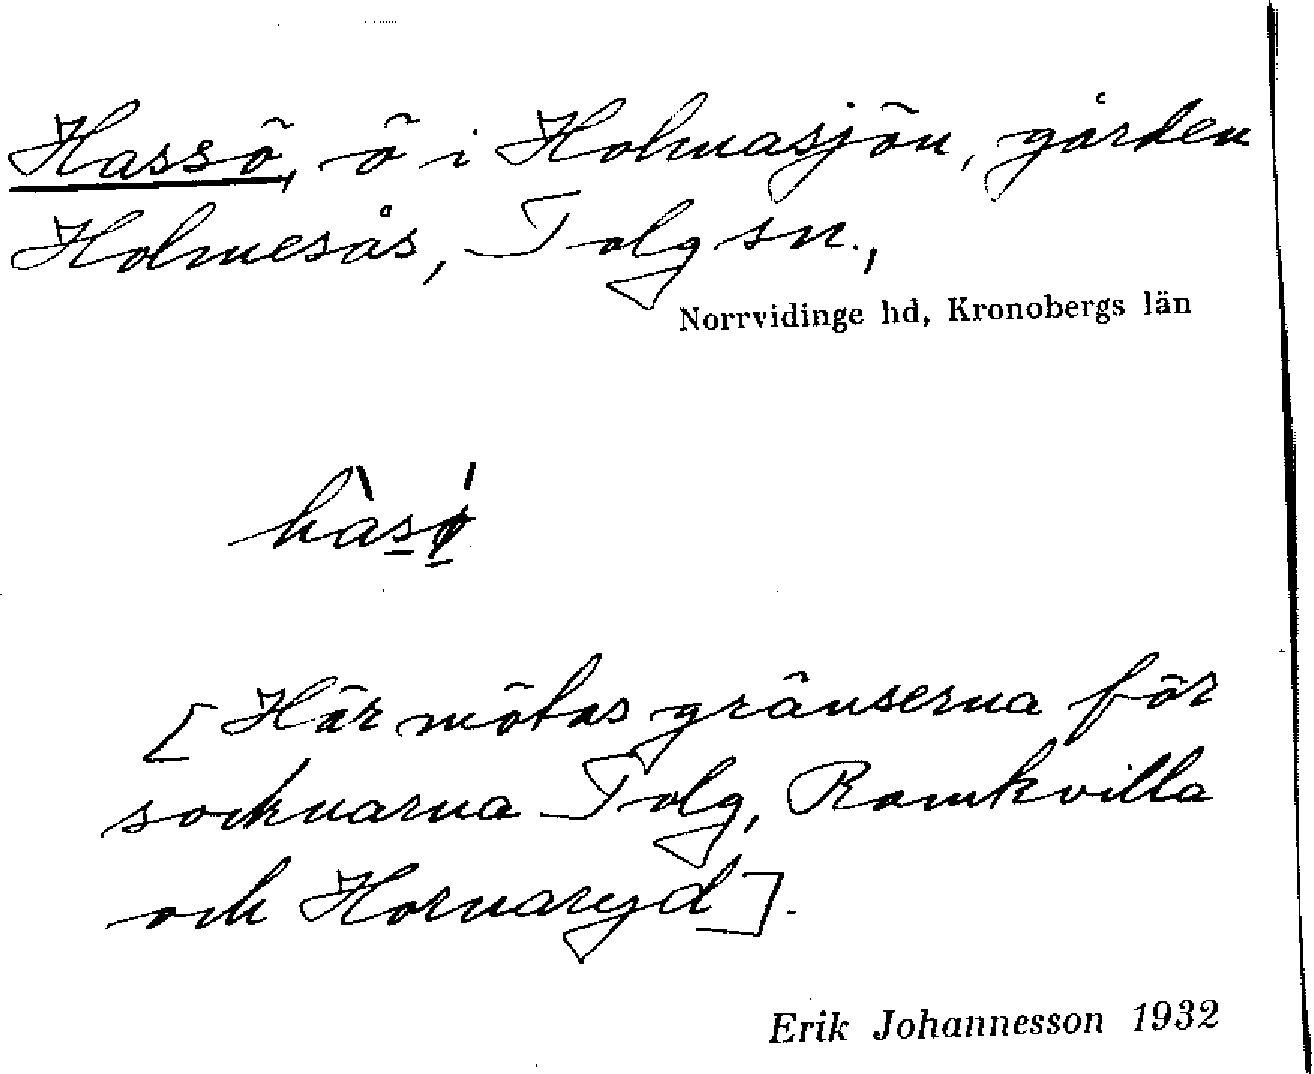 Hassö, ö i Holmasjön, gården
Holmesås, Tolg sn.,
Norrvidinge hd, Kronobergs län
hàsǿ
[Här mötas gränserna för
socknarna Tolg, Ramkvilla
och Hornaryd].
Erik Johannesson 1932